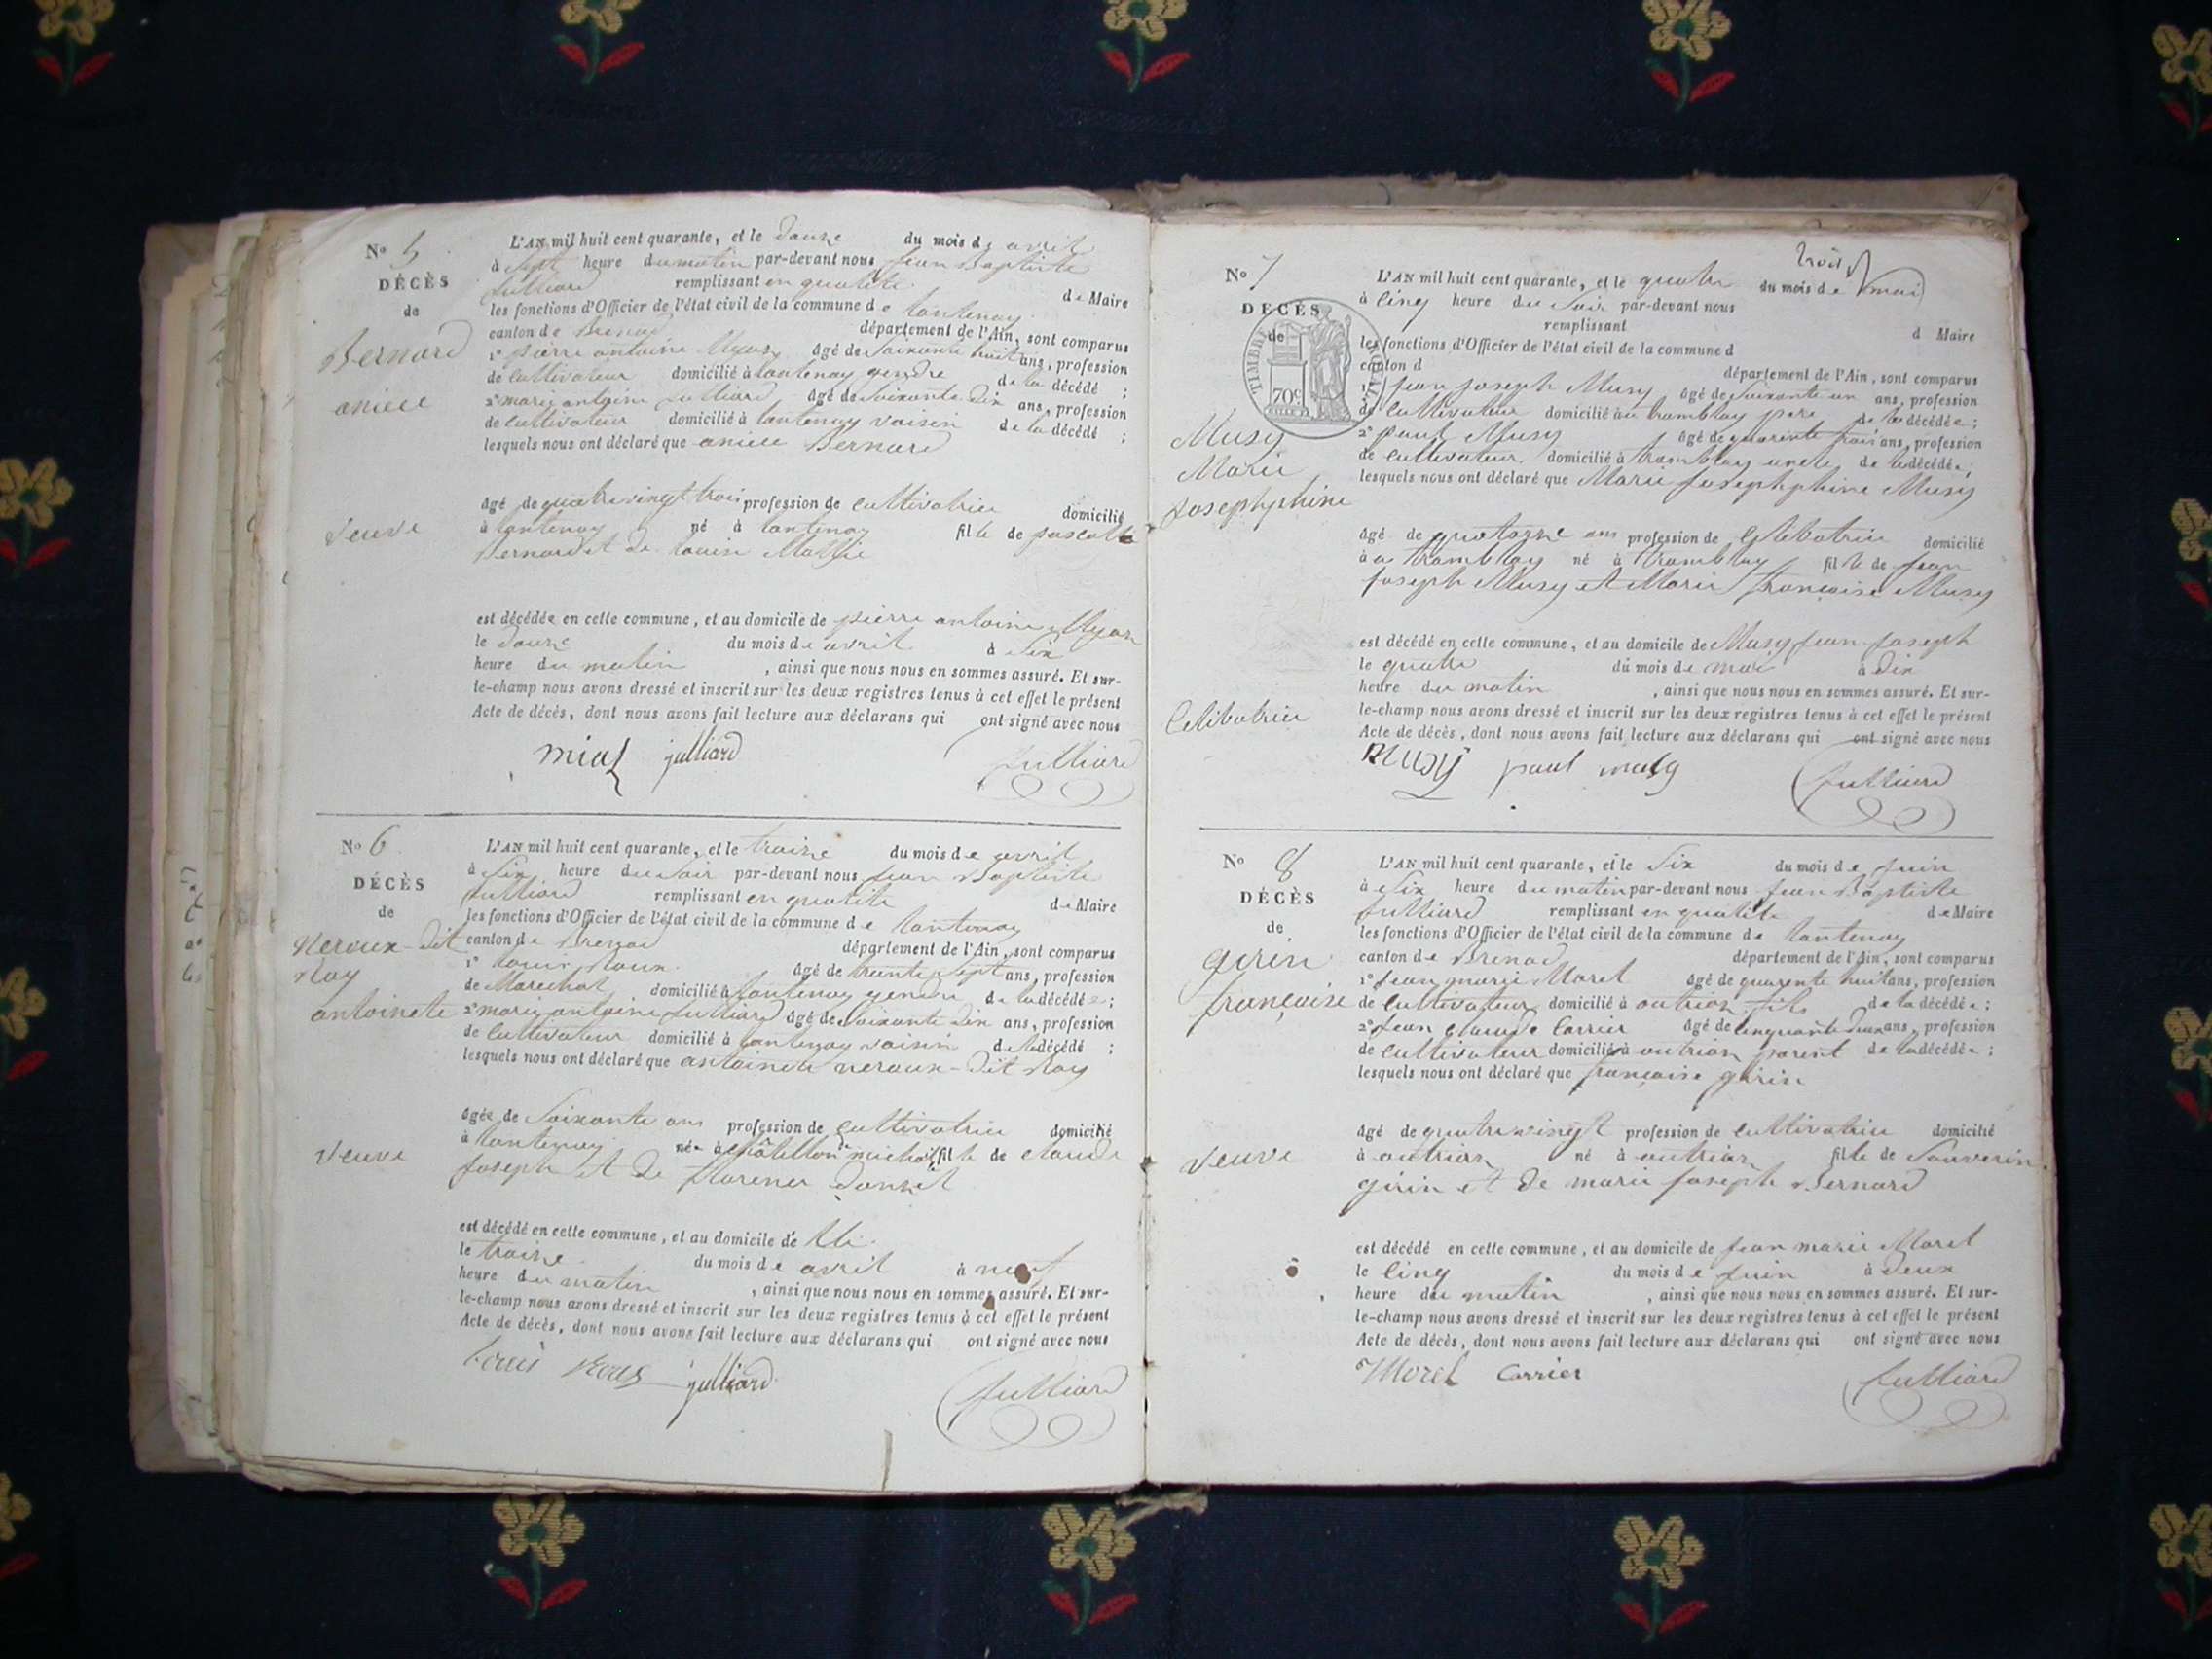 No 5
DÉCÈS
de
Bernard
aniece
veuve
L'AN mil huit cent quarante, et le douze du mois de avril
à sept heure du matin par-devant nous Jean Baptiste
Julliard remplissant en qualité de Maire
les fonctions d'Officier de l'état civil de la commune de Lantenay
canton de Brenod département de l'Ain, sont comparus
1° pierre antoine agé de soixante huit ans, profession
de cultivateur domicilié à Lantenay gendre de la décédé ;
2° marie antoine Julliard agé de soixante dix ans, profession
de cultivateur domicilié à Lantenay voisin de la décédé ;
lesquels nous ont déclaré que aniece Bernard
agé de quatre vingt trois profession de cultivatrice domicilié
à Lantenay né à Lantenay fille de pascal
Bernard et de Louise
est décédée en cette commune, et au domicile de pierre antoine
le douze du mois de avril à six
heure du matin , ainsi que nous nous en sommes assuré. Et sur-
le-champ nous avons dressé et inscrit sur les deux registres tenus à cet effet le présent
Acte de décès, dont nous avons fait lecture aux déclarans qui ont signé avec nous
julliard Julliard
No 6
DÉCÈS
de
neroux-dit
Ray
antoinete
veuve
L'AN mil huit cent quarante, et le traize du mois de avril
à six heure du soir par-devant nous Jean Baptiste
Julliard remplissant en qualité de Maire
les fonctions d'Officier de l'état civil de la commune de Lantenay
canton de Brenod département de l'Ain, sont comparus
1° Louis Roux agé de trante sept ans, profession
de Marechal domicilié à Lantenay gendre de la décédée ;
2° marie antoine Julliard agé de soixante dix ans, profession
de cultivateur domicilié à Lantenay voisin de la décédé ;
lesquels nous ont déclaré que antoinete neroux-dit Ray
agée de soixante ans profession de cultivatrice domicilié
à Lantenay née à châtillon de michaille fille de claude
Joseph et de florence
est décédé en cette commune, et au domicile de
le traize du mois de avril à neuf
heure du matin , ainsi que nous nous en sommes assuré. Et sur-
le-champ nous avons dressé et inscrit sur les deux registres tenus à cet effet le présent
Acte de décès, dont nous avons fait lecture aux déclarans qui ont signé avec nous
Louis Roux julliard Julliard
No 7
DÉCÈS
de
TIMBRE ROYAL
70c
Musy
Marie
Josephphine
Celibatrice
trois
L'AN mil huit cent quarante, et le quatre du mois de mai
à cinq heure du soir par-devant nous
remplissant d Maire
les fonctions d'Officier de l'état civil de la commune d
canton d département de l'Ain, sont comparus
1° Jean Joseph Musy agé de soixante un ans, profession
de cultivateur domicilié au tramblay pere de la décédée ;
2° paul Musy agé de quarante trois ans, profession
de cultivateur domicilié à tramblay oncle de la décédée ;
lesquels nous ont déclaré que Marie Josephphine Musy
agé de quatorze ans profession de Celibatrice domicilié
à au tramblay né à tramblay fille de Jean
Joseph Musy et Marie françoise Musy
est décédé en cette commune, et au domicile de Musy Jean Joseph
le quatre du mois de mai à dix
heure du matin , ainsi que nous nous en sommes assuré. Et sur-
le-champ nous avons dressé et inscrit sur les deux registres tenus à cet effet le présent
Acte de décès, dont nous avons fait lecture aux déclarans qui ont signé avec nous
Musy paul musy Julliard
No 8
DÉCÈS
de
girin
françoise
veuve
L'AN mil huit cent quarante, et le six du mois de juin
à six heure du matin par-devant nous Jean Baptiste
Julliard remplissant en qualité de Maire
les fonctions d'Officier de l'état civil de la commune de Lantenay
canton de Brenod département de l'Ain, sont comparus
1° Jean marie Morel agé de quarente huit ans, profession
de cultivateur domicilié à outriaz fils de la décédée ;
2° Jean claude Carrier agé de cinquante deux ans, profession
de cultivateur domicilié à outriaz parent de la décédée ;
lesquels nous ont déclaré que françoise girin
agé de quatre vingt profession de cultivatrice domicilié
à outriaz né à outriaz fille de Sauverin
girin et de marie joseph Bernard
est décédé en cette commune, et au domicile de Jean marie Morel
le cinq du mois de juin à deux
heure du matin , ainsi que nous nous en sommes assuré. Et sur-
le-champ nous avons dressé et inscrit sur les deux registres tenus à cet effet le présent
Acte de décès, dont nous avons fait lecture aux déclarans qui ont signé avec nous
Morel Carrier Julliard